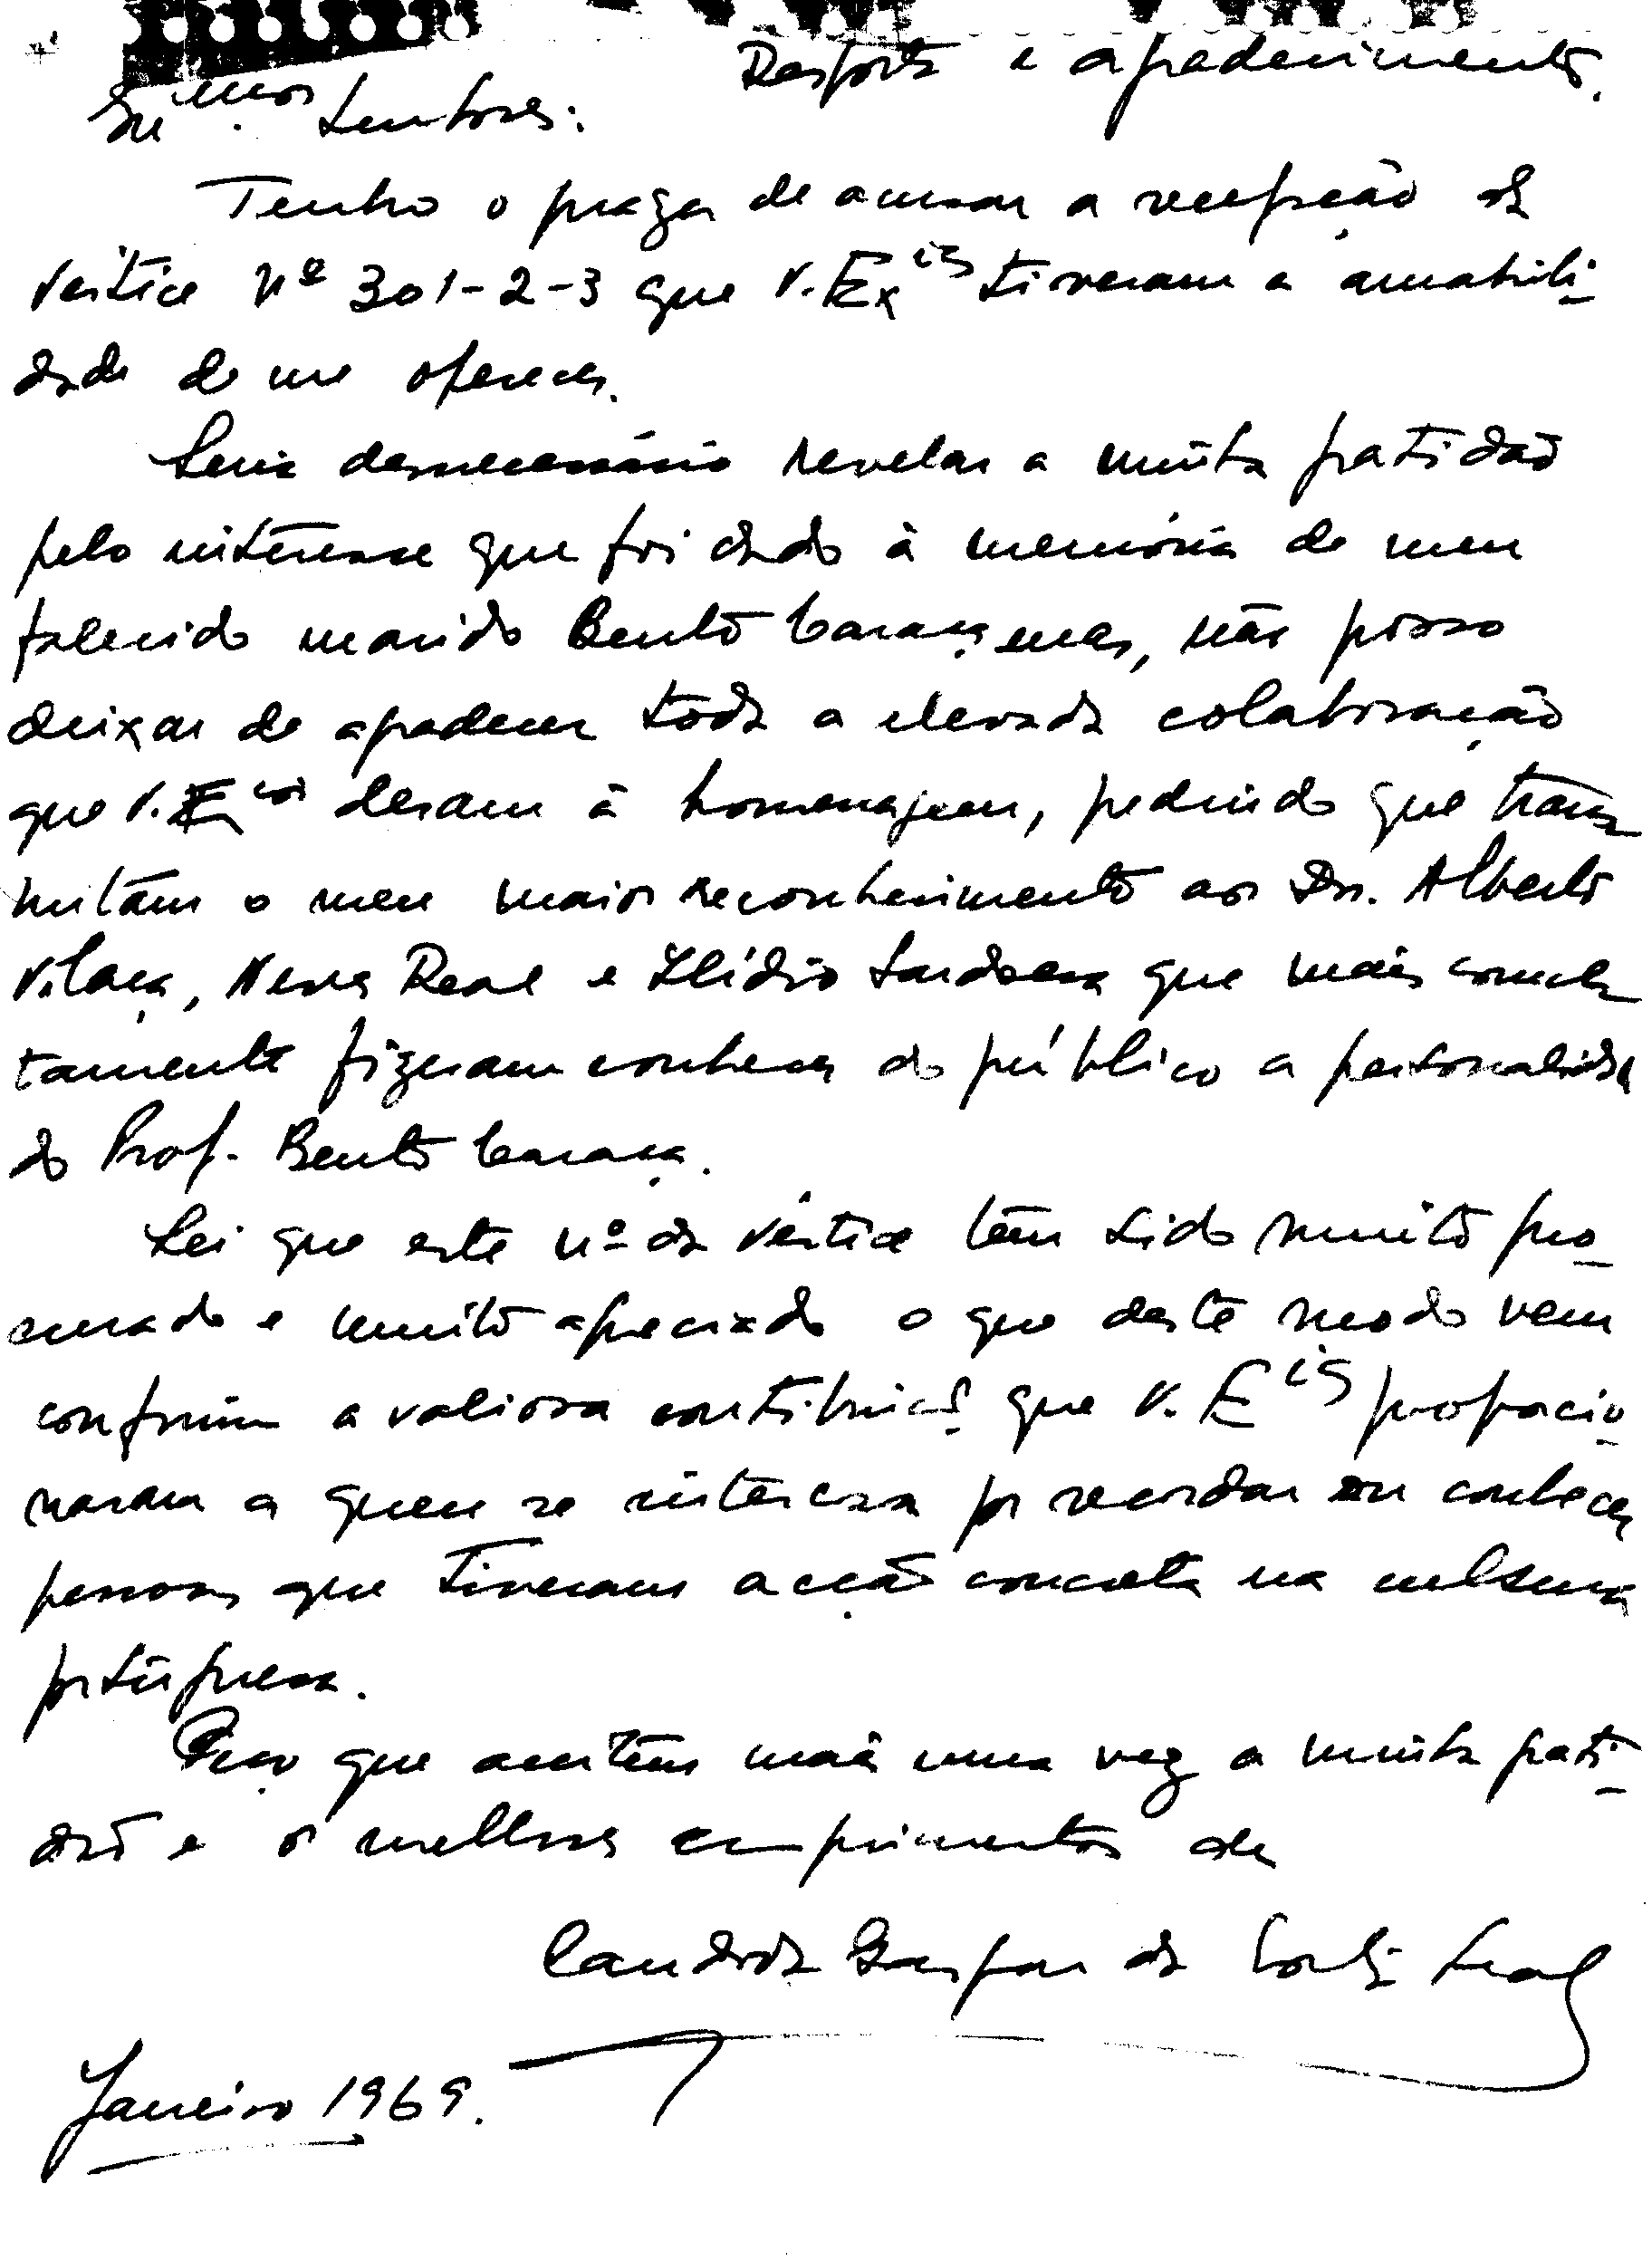 Resposta e agradecimento.
Ex.mos Senhores:
Tenho o prazer de acusar a recepção da
Vértice Nº 301-2-3 que V. Ex.cias tiveram a amabili-
dade de me oferecer.
Seria desnecessário revelar a minha gratidão
pelo interesse que foi dado à memória de meu
falecido marido Bento Caraça, mas, não posso
deixar de agradecer toda a elevada colaboração
que V. Ex.cias deram à homenagem, pedindo que trans-
mitam o meu maior reconhecimento aos Drs. Alberto
Vilaça, Neves Real e Ilídio Sardoeira que mais concre-
tamente fizeram conhecer do público a personalidade
do Prof. Bento Caraça.
Sei que este nº da Vértice tem sido muito pro-
curado e muito apreciado o que deste modo vem
confirmar a valiosa contribuição que V. E.cias proporcio-
naram a quem se interessa por recordar ou conhecer
pessoas que tiveram acção concreta na cultura
portuguesa.
Peço que aceitem mais uma vez a minha grati-
dão e os melhores cumprimentos de
Candida Gaspar da
Janeiro 1969.